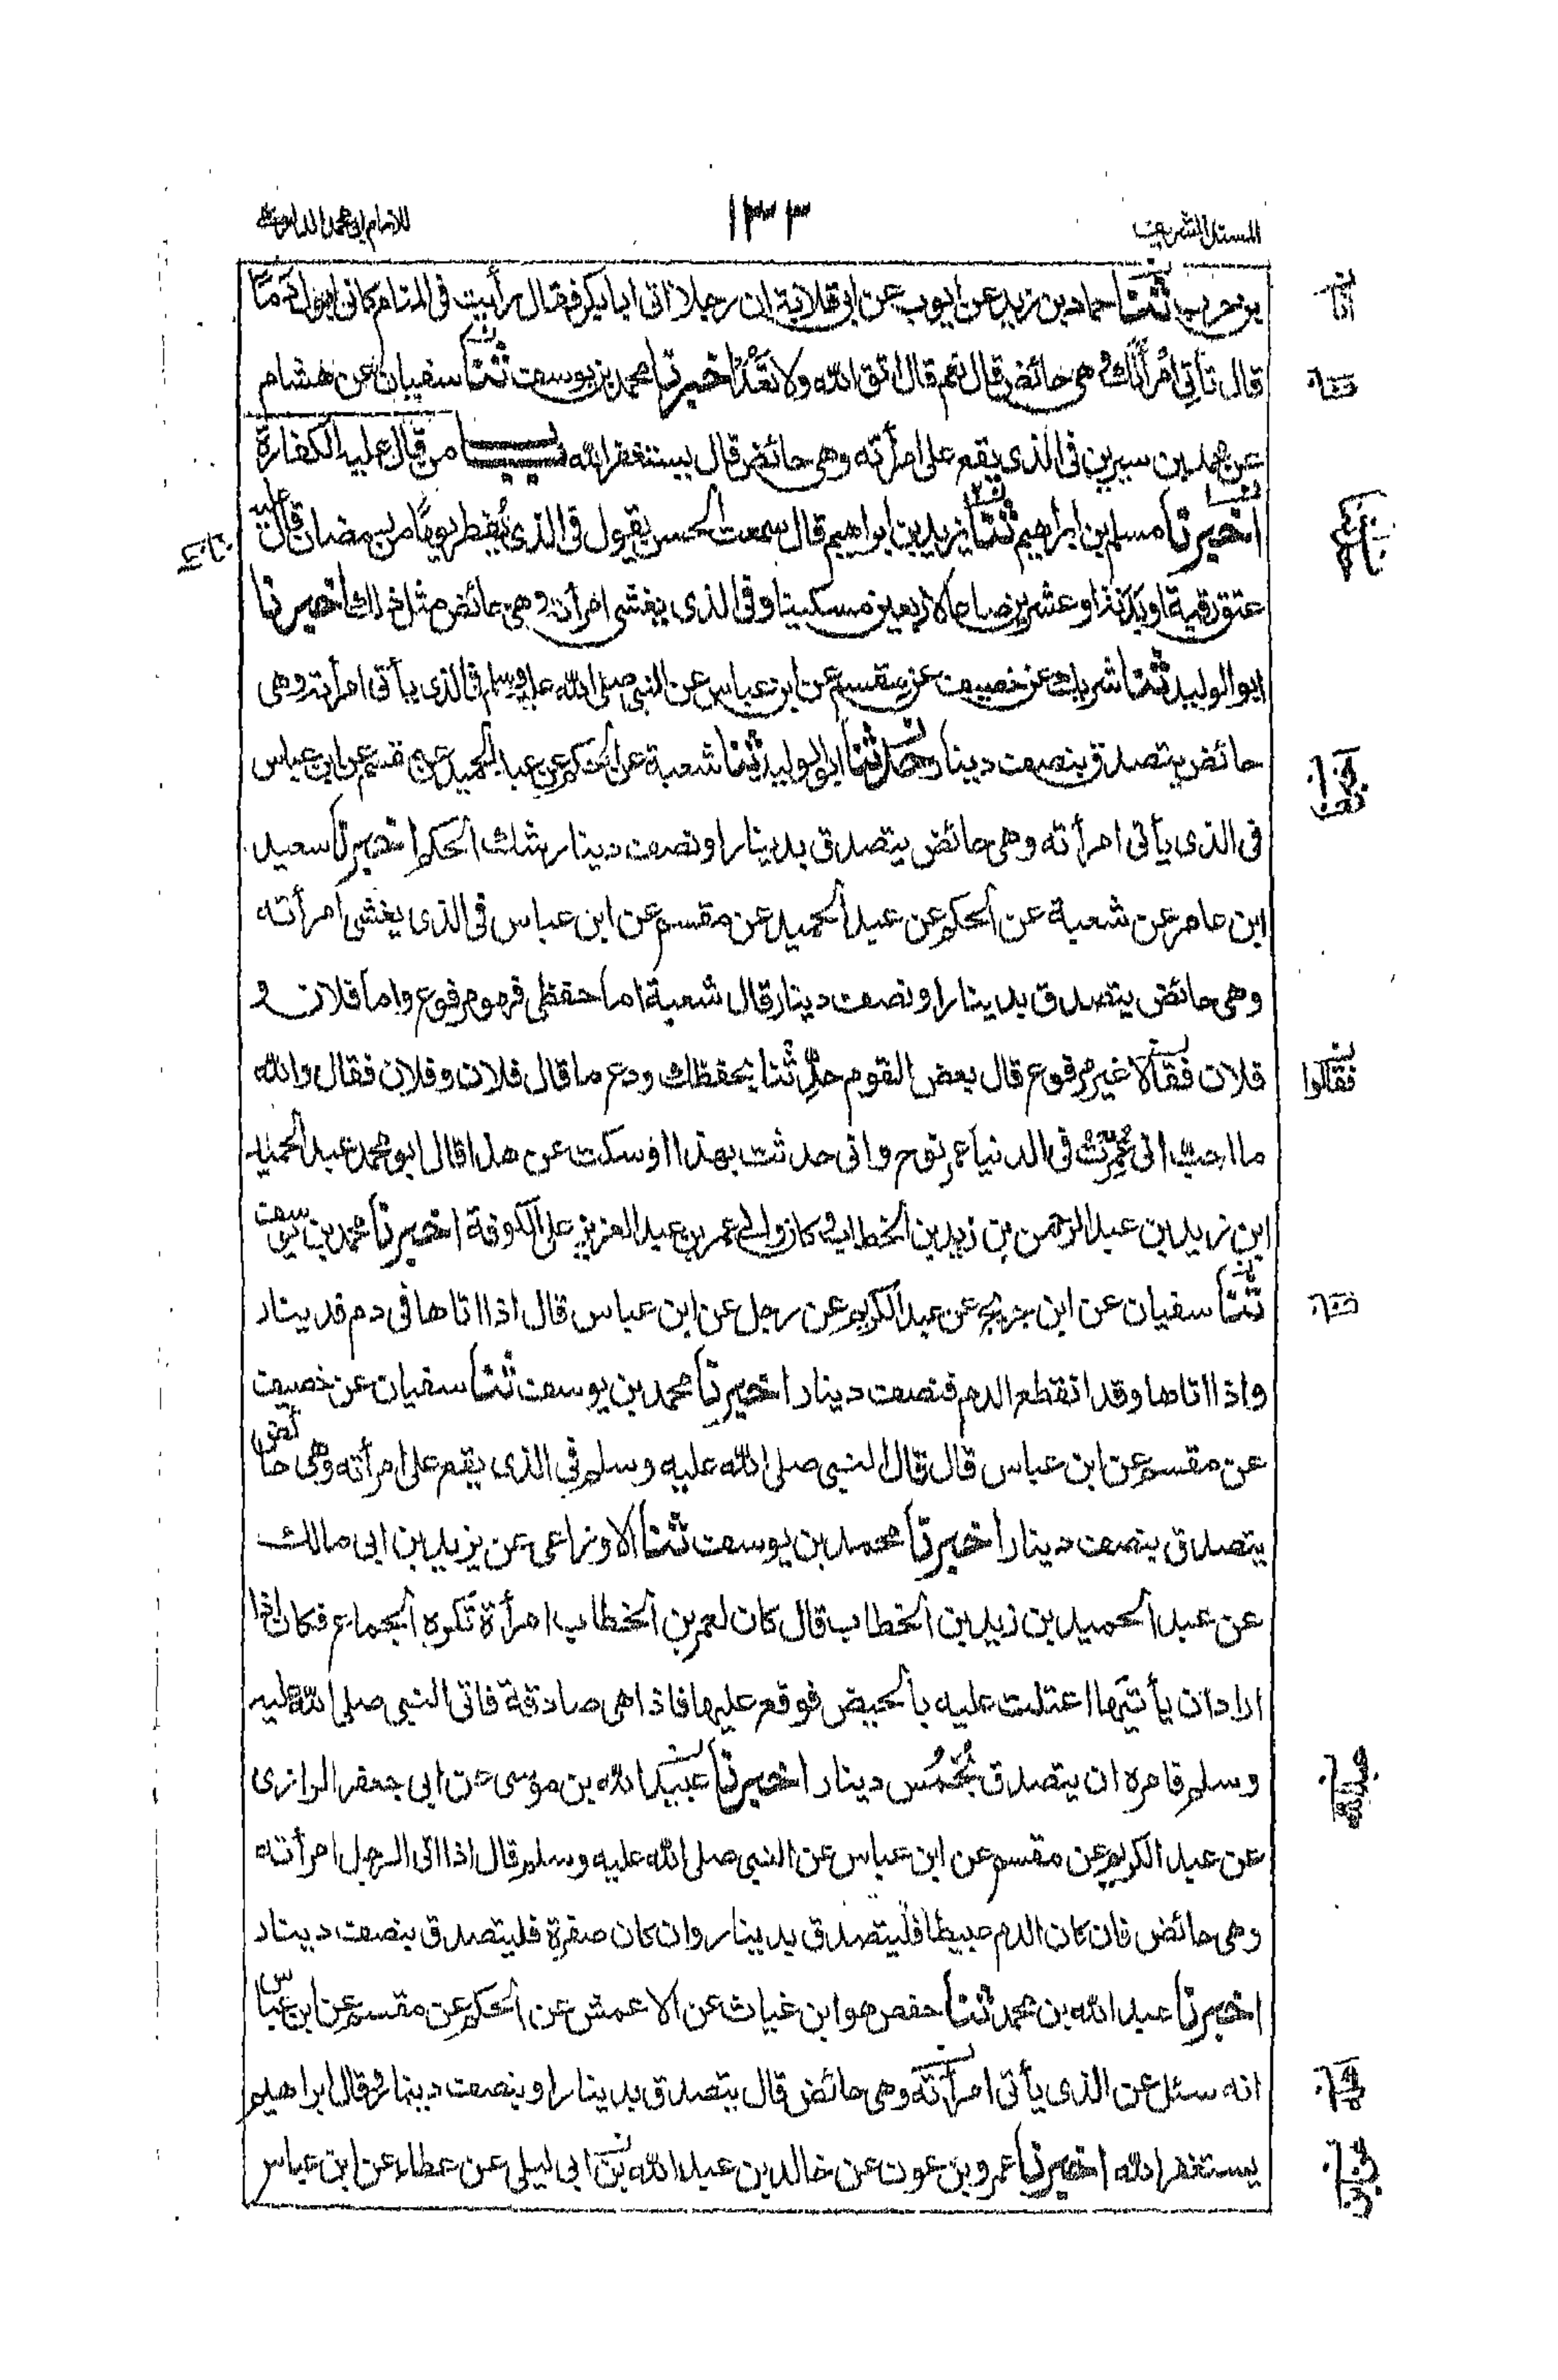 المسند الشريف
١٣٣
للامام ابي محمد الدارمي
بن حرب ثنا حماد بن زيد عن ايوب عن ابي قلابة ان رجلا اتى ابا بكر فقال رأيت في المنام كاني ابول دَمًا
قال تأتي امْرأتك وهي حائض قال نعم قال اتق الله ولا تَعُدْ اخبرنا محمد بن يوسف ثنا سفيان عن هشام
عن محمد بن سيرين في الذى يقع على امرأته وهى حائض قال يستغفر الله باب من قال عليه الكفارة
اخبرنا مسلم بن ابراهيم ثنا يزيد بن ابراهيم قال سمعت الحسن يقول في الذى يُفطر يومًا من رمضان قال عليه
عتق رقبة او بدنة او عشرين صاعا لاربعين مسكينا وفي الذى يغشى امرأته وهى حائض مثل ذلك اخبرنا
ابو الوليد ثنا شريك عن خصيف عن مقسم عن ابن عباس عن النبي صلى الله عليه وسلم في الذى يأتى امرأته وهى
حائض يتصدق بنصف دينار حدثنا ابو الوليد ثنا شعبة عن الحكم عن عبد الحميد عن مقسم عن ابن عباس
في الذى يأتى امرأته وهى حائض يتصدق بدينار او نصف دينار شك الحكم اخبرنا سعيد
ابن عامر عن شعبة عن الحكم عن عبد الحميد عن مقسم عن ابن عباس في الذى يغشى امرأته
وهى حائض يتصدق بدينار او نصف دينار قال شعبة اما حفظى فهو مرفوع واما فلان و
فلان فقالا غير مرفوع قال بعض القوم حدثنا بحفظك ودع ما قال فلان وفلان فقال والله
ما احب انى عُمِّرْتُ في الدنيا عمر نوح وانى حدثت بهذا او سكت عن هذا قال ابو محمد عبد الحميد
ابن زيد بن عبد الرحمن بن زيد بن الخطاب وكان والى عمر بن عبد العزيز على الكوفة اخبرنا محمد بن يوسف
ثنا سفيان عن ابن جريج عن عبد الكريم عن رجل عن ابن عباس قال اذا اتاها في دم فدينار
واذا اتاها وقد انقطع الدم فنصف دينار اخبرنا محمد بن يوسف ثنا سفيان عن خصيف
عن مقسم عن ابن عباس قال قال النبي صلى الله عليه وسلم في الذى يقع على امرأته وهى حائض
يتصدق بنصف دينار اخبرنا محمد بن يوسف ثنا الاوزاعى عن يزيد بن ابى مالك
عن عبد الحميد بن زيد بن الخطاب قال كان لعمر بن الخطاب امرأة تكره الجماع فكان اذا
اراد ان يأتيَها اعتلت عليه بالحيض فوقع عليها فاذا هى صادقة فاتى النبي صلى الله عليه
وسلم فامره ان يتصدق بخُمُس دينار اخبرنا عُبيد الله بن موسى عن ابى جعفر الرازى
عن عبد الكريم عن مقسم عن ابن عباس عن النبي صلى الله عليه وسلم قال اذا اتى الرجل امرأته
وهى حائض فان كان الدم عبيطا فليتصدق بدينار وان كان صفرة فليتصدق بنصف دينار
اخبرنا عبد الله بن محمد ثنا حفص هو ابن غياث عن الاعمش عن الحكم عن مقسم عن ابن عباس
انه سئل عن الذى يأتى امرأته وهى حائض قال يتصدق بدينار او بنصف دينار وقال ابراهيم
يستغفر الله اخبرنا عمرو بن عون عن خالد بن عبد الله بن ابى ليلى عن عطاء عن ابن عباس
فقالوا
عبد الله